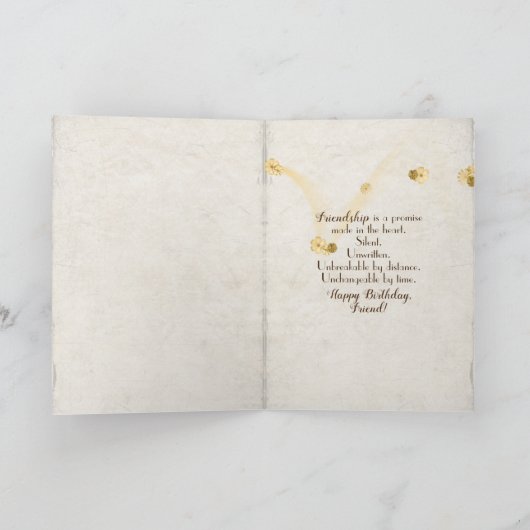 Friendship is a promise
made in the heart.
Silent.
Unwritten.
Unbreakable by distance.
Unchangeable by time.
Happy Birthday,
Friend!